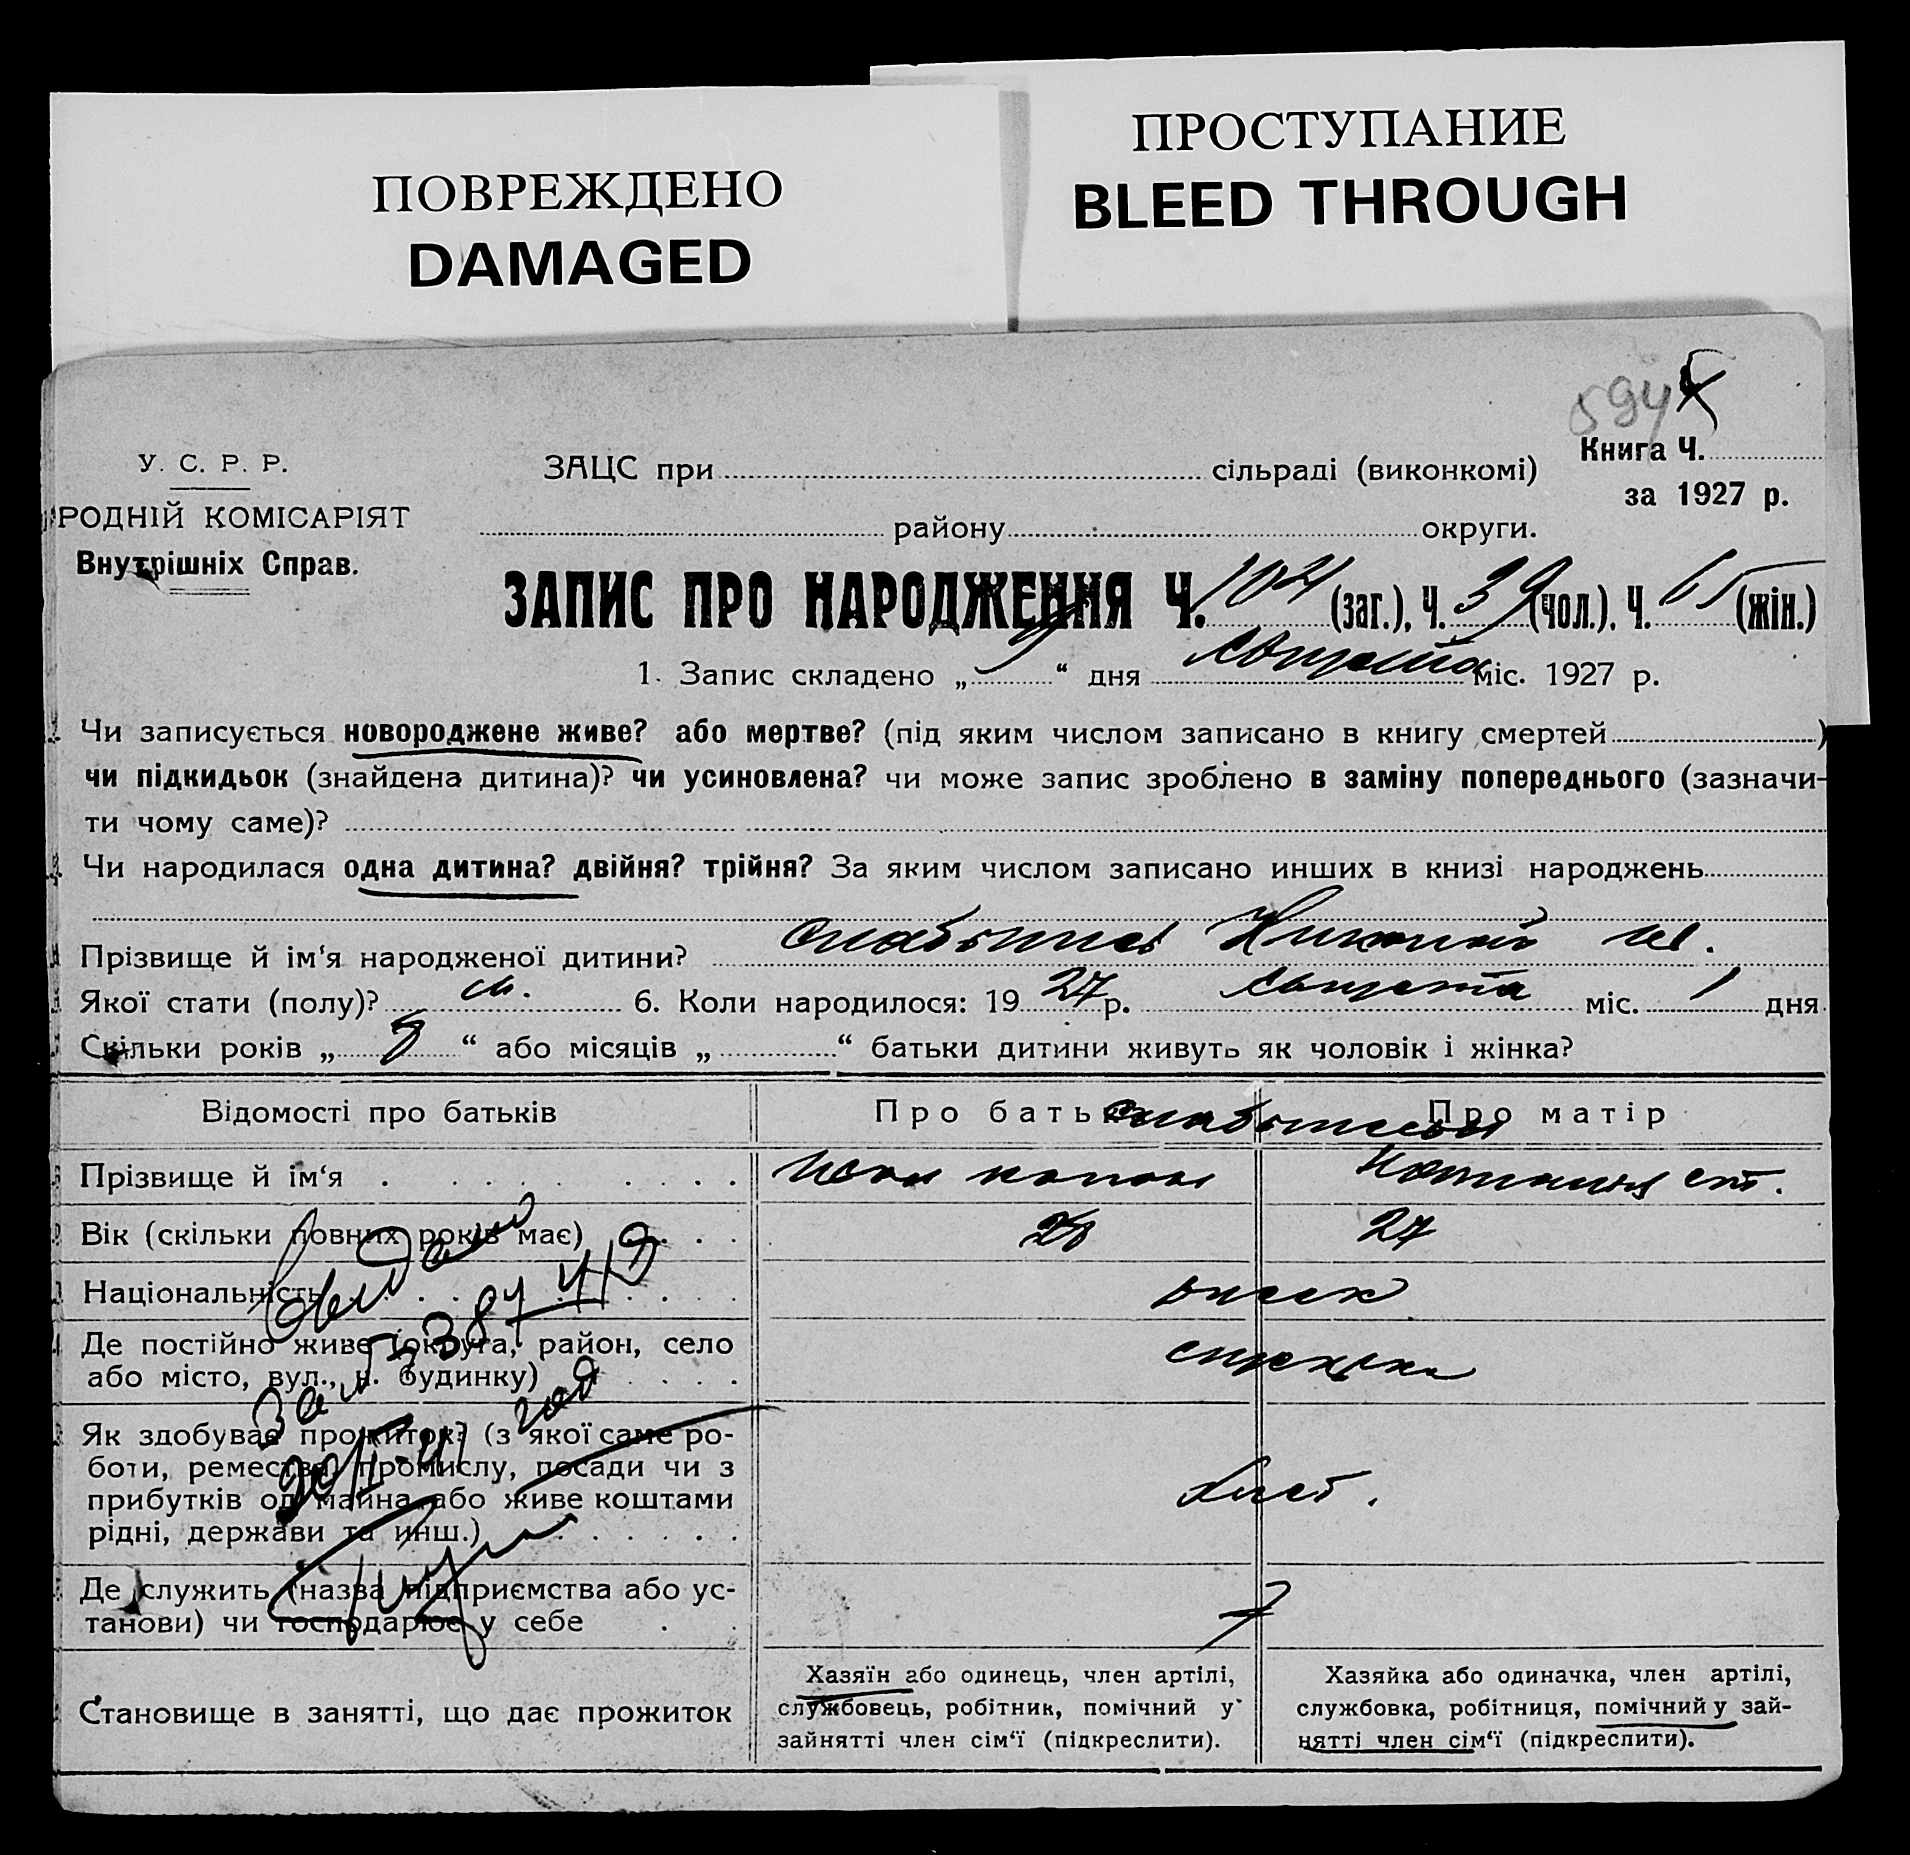 ПОВРЕЖДЕНО
DAMAGED
ПРОСТУПАНИЕ
BLEED THROUGH
594
У. С. Р. Р.
РОДНІЙ КОМІСАРІЯТ
Внутрішніх Справ.
ЗАЦС при сільраді (виконкомі)
Книга Ч.
за 1927 р.
району округи.
ЗАПИС ПРО НАРОДЖЕННЯ Ч. 104 (заг.), Ч. 39 (чол.), Ч. 65 (жін.)
1. Запис складено „ 9 “ дня Августа міс. 1927 р.
Чи записується новороджене живе? або мертве? (під яким числом записано в книгу смертей )
чи підкидьок (знайдена дитина)? чи усиновлена? чи може запис зроблено в заміну попереднього (зазначи-
ти чому саме)?
Чи народилася одна дитина? двійня? трійня? За яким числом записано инших в книзі народжень
Прізвище й ім‘я народженої дитини?
Якої стати (полу)? м. 6. Коли народилося: 19 27 р. Августа міс. 1 дня
Скільки років „ “ або місяців „ “ батьки дитини живуть як чоловік і жінка?
Відомості про батьків
Про батька
Про матір
Прізвище й ім‘я
Вік (скільки повних років має) 27
Національність
Де постійно живе (округа, район, село
або місто, вул., ч. будинку)
Як здобуває прожиток? (з якої саме ро-
боти, ремества, промислу, посади чи з
прибутків од майна або живе коштами
рідні, держави та инш.)
Де служить (назва підприємства або ус-
танови) чи господарює у себе
Становище в занятті, що дає прожиток
Хазяїн або одинець, член артілі,
службовець, робітник, помічний у
зайнятті член сім‘ї (підкреслити).
Хазяйка або одиначка, член артілі,
службовка, робітниця, помічний у зай-
нятті член сім‘ї (підкреслити).